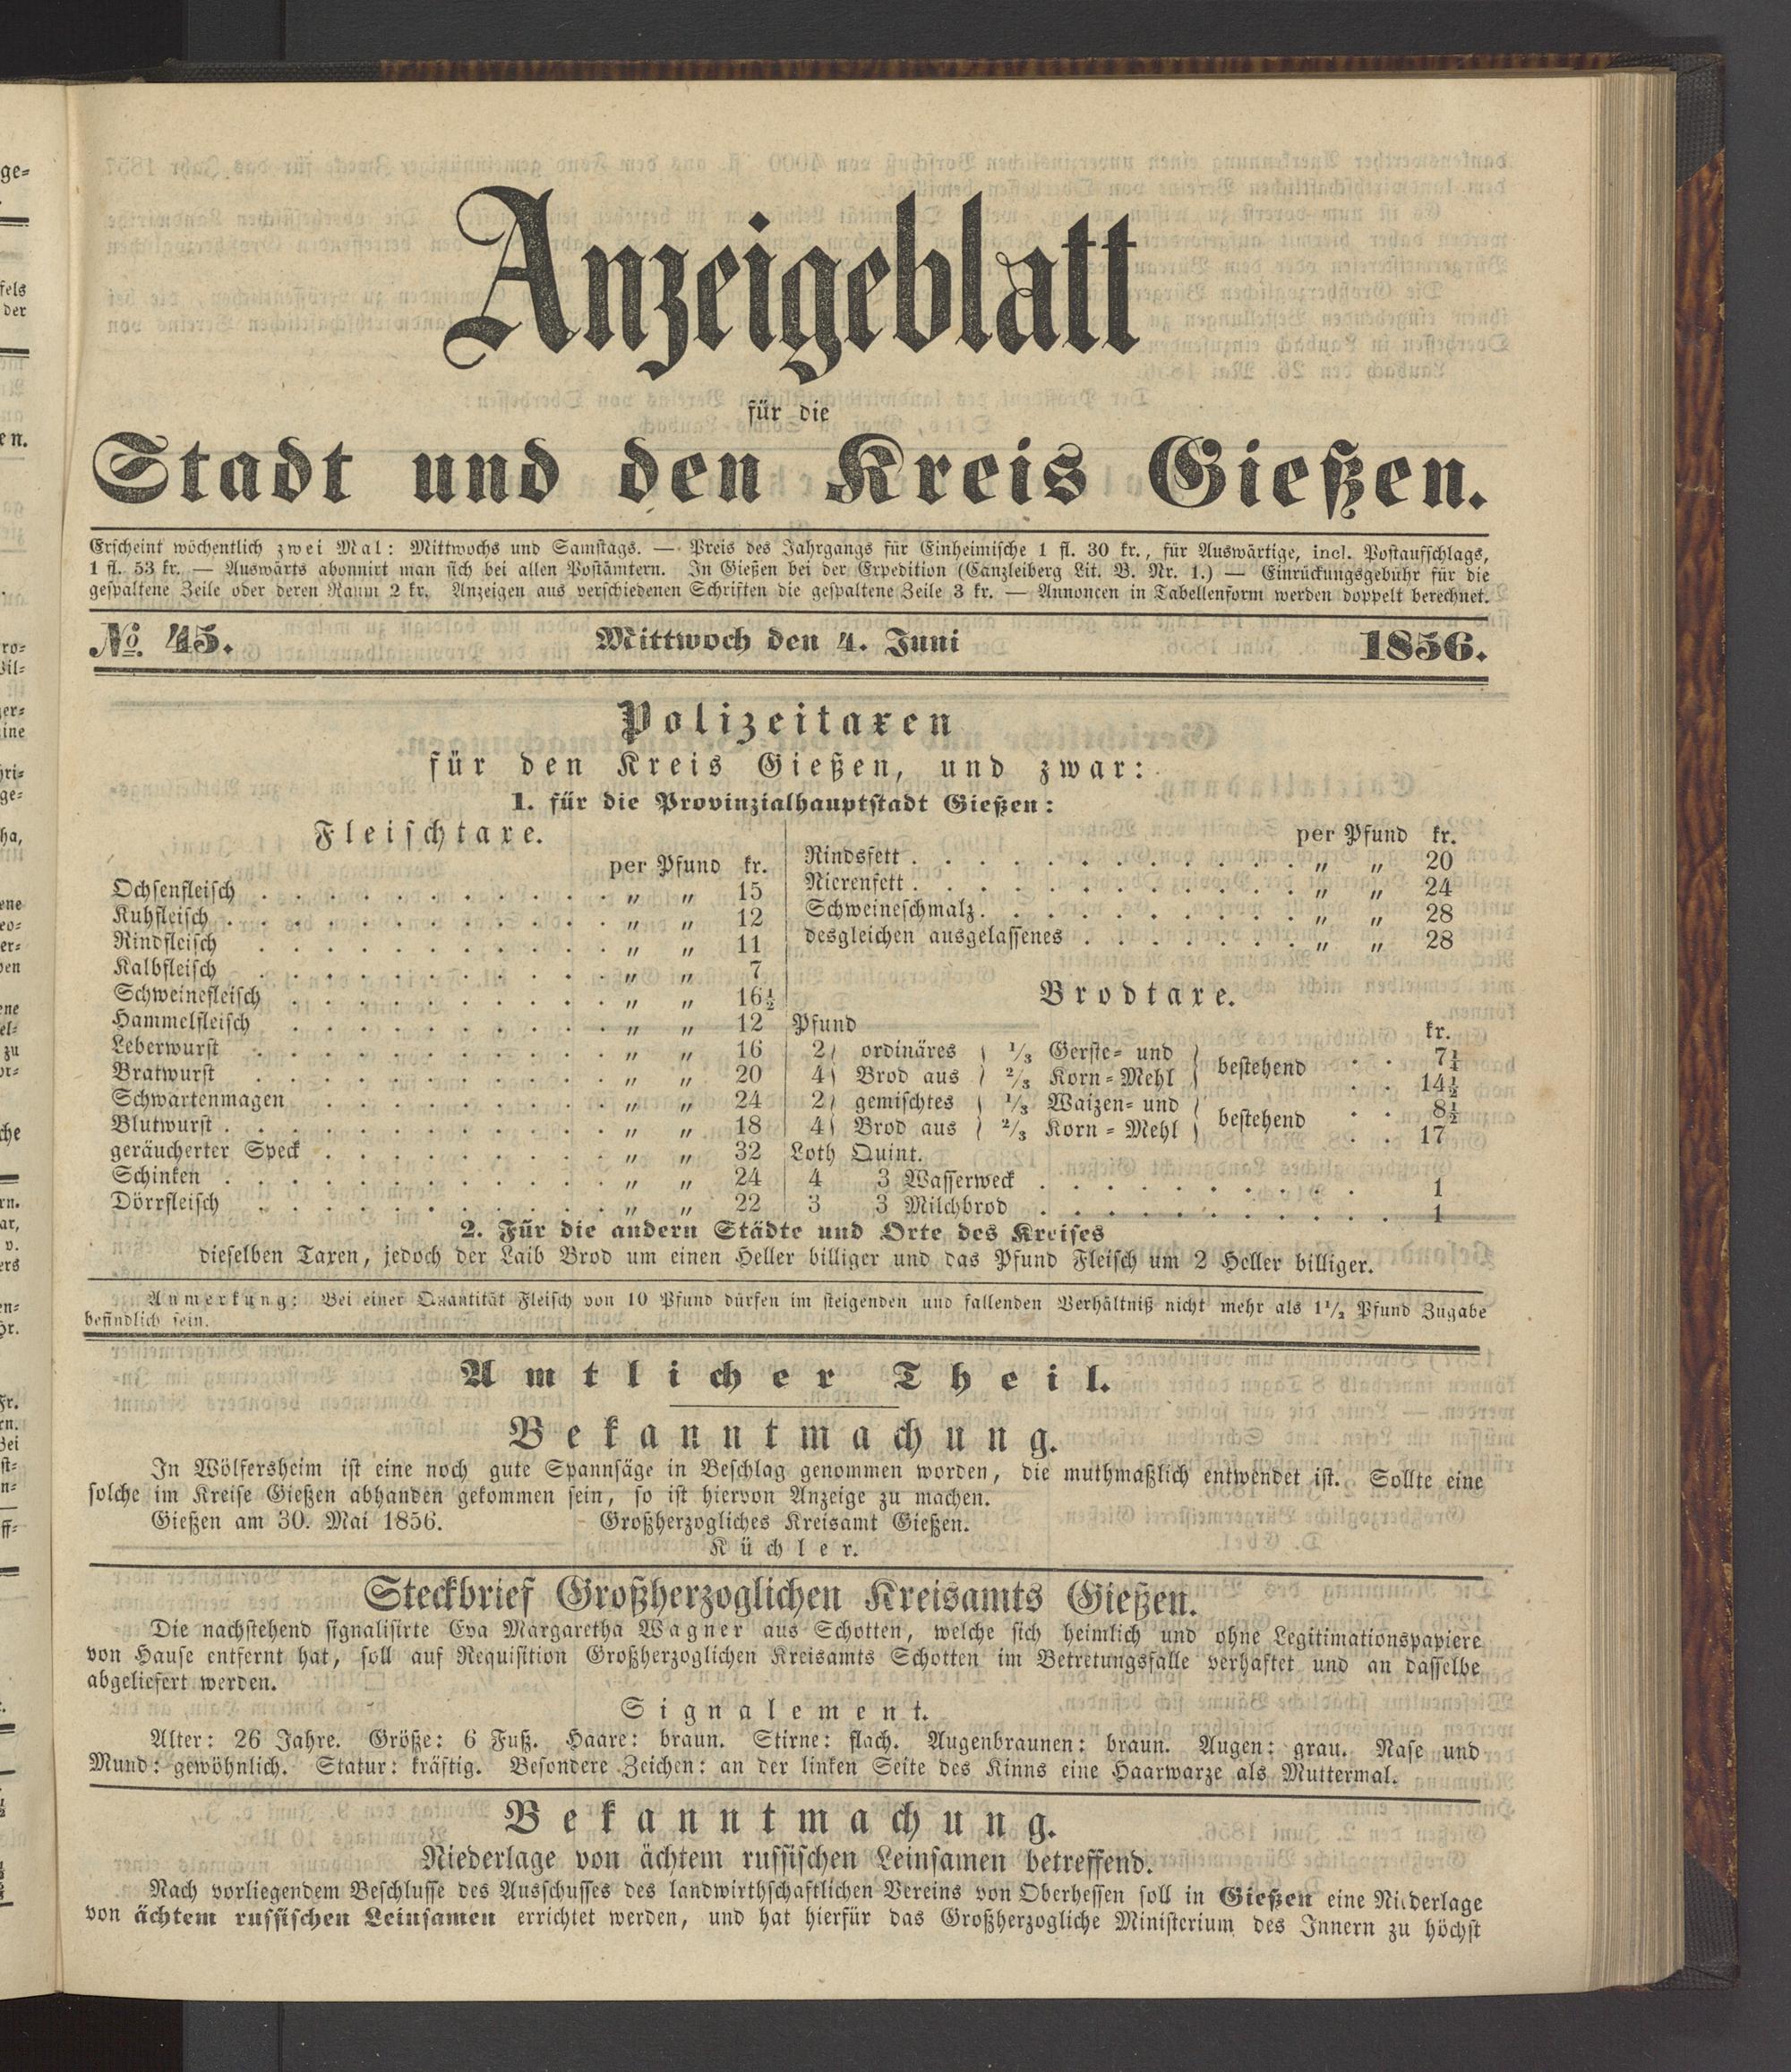 Anzeigeblatt
für die
Stadt und den Kreis Gießen.
Erscheint wöchentlich zwei Mal: Mittwochs und Samstags. — Preis des Jahrgangs für Einheimische 1 fl. 30 kr., für Auswärtige, incl. Postaufschlags,
1 fl. 53 kr. — Auswärts abonnirt man sich bei allen Postämtern. In Gießen bei der Expedition (Canzleiberg Lit. B. Nr. 1.) — Einrückungsgebühr für die
gespaltene Zeile oder deren Raum 2 kr. Anzeigen aus verschiedenen Schriften die gespaltene Zeile 3 kr. — Annoncen in Tabellenform werden doppelt berechnet.
No. 45. Mittwoch den 4. Juni 1856.
Polizeitaxen
für den Kreis Gießen, und zwar:
1. für die Provinzialhauptstadt Gießen:
Fleischtaxe.
per Pfund kr.
Ochsenfleisch . . . . . . . . . . . „ „ 15
Kuhfleisch . . . . . . . . . . . . „ „ 12
Rindfleisch . . . . . . . . . . . „ „ 11
Kalbfleisch . . . . . . . . . . . „ „ 7
Schweinefleisch . . . . . . . . . . „ „ 16½
Hammelfleisch . . . . . . . . . . „ „ 12
Leberwurst . . . . . . . . . . . „ „ 16
Bratwurst . . . . . . . . . . . „ „ 20
Schwartenmagen . . . . . . . . . „ „ 24
Blutwurst . . . . . . . . . . . . „ „ 18
geräucherter Speck . . . . . . . . . „ „ 32
Schinken . . . . . . . . . . . . „ „ 24
Dörrfleisch . . . . . . . . . . . „ „ 22
per Pfund kr.
Rindsfett . . . . . . . . . . . . „ „ 20
Nierenfett . . . . . . . . . . . . „ „ 24
Schweineschmalz . . . . . . . . . . „ „ 28
desgleichen ausgelassenes . . . . . . . „ „ 28
Brodtaxe.
Pfund kr.
2 } ordinäres { 1/3 Gerste- und } bestehend . . 7¼
4 } Brod aus { 2/3 Korn-Mehl } . . 14½
2 } gemischtes { 1/3 Waizen- und } bestehend . . 8½
4 } Brod aus { 2/3 Korn-Mehl } . . 17
Loth Quint.
4 3 Wasserweck . . . . . . . . . . 1
3 3 Milchbrod . . . . . . . . . . . 1
2. Für die andern Städte und Orte des Kreises
dieselben Taxen, jedoch der Laib Brod um einen Heller billiger und das Pfund Fleisch um 2 Heller billiger.
Anmerkung: Bei einer Quantität Fleisch von 10 Pfund dürfen im steigenden und fallenden Verhältniß nicht mehr als 1½ Pfund Zugabe
befindlich sein.
Amtlicher Theil.
Bekanntmachung.
In Wölfersheim ist eine noch gute Spannsäge in Beschlag genommen worden, die muthmaßlich entwendet ist. Sollte eine
solche im Kreise Gießen abhanden gekommen sein, so ist hiervon Anzeige zu machen.
Gießen am 30. Mai 1856. Großherzogliches Kreisamt Gießen.
Küchler.
Steckbrief Großherzoglichen Kreisamts Gießen.
Die nachstehend signalisirte Eva Margaretha Wagner aus Schotten, welche sich heimlich und ohne Legitimationspapiere
von Hause entfernt hat, soll auf Requisition Großherzoglichen Kreisamts Schotten im Betretungsfalle verhaftet und an dasselbe
abgeliefert werden.
Signalement.
Alter: 26 Jahre. Größe: 6 Fuß. Haare: braun. Stirne: flach. Augenbraunen: braun. Augen: grau. Nase und
Mund: gewöhnlich. Statur: kräftig. Besondere Zeichen: an der linken Seite des Kinns eine Haarwarze als Muttermal.
Bekanntmachung.
Niederlage von ächtem russischen Leinsamen betreffend.
Nach vorliegendem Beschlusse des Ausschusses des landwirthschaftlichen Vereins von Oberhessen soll in Gießen eine Niederlage
von ächtem russischen Leinsamen errichtet werden, und hat hierfür das Großherzogliche Ministerium des Innern zu höchst